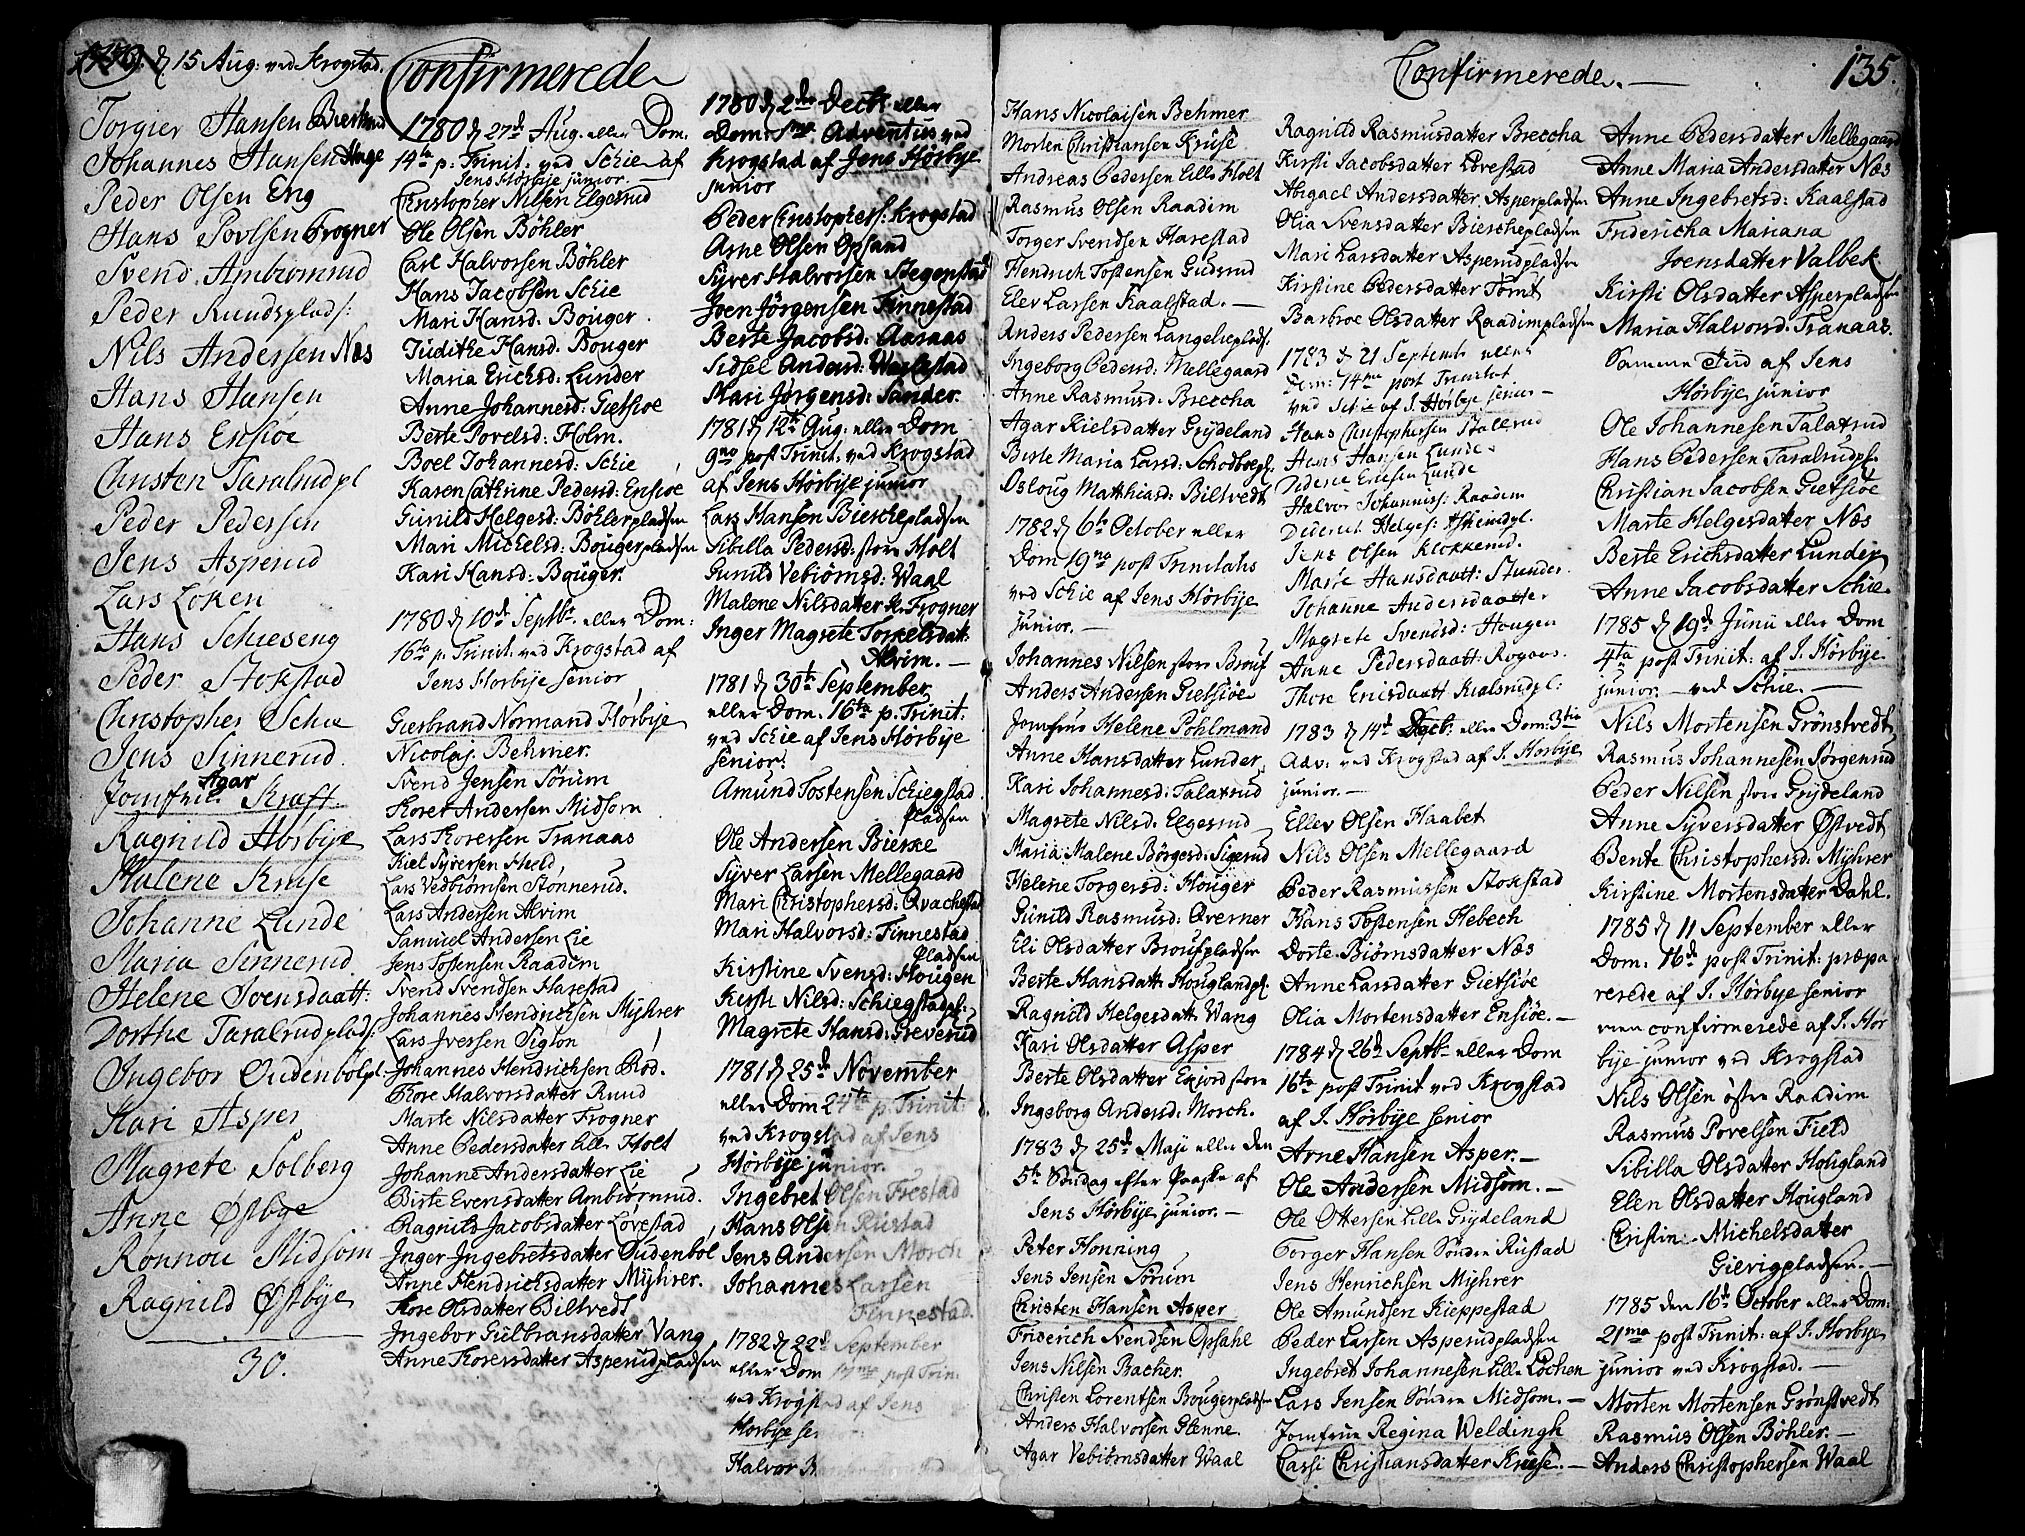 1779. d 15 Aug: ved Krogstad.
Confirmerede
Torgier Hansen
Johannes Hansen Hage
Peder Olsen Eng
Hans Povlsen Frogner
Svend Ambiörnrud
Peder Ruudsplads:
Nils Andersen Næs
Hans Hansen
Hans Ensiöe
Christen Taralrudpl
Peder Pedersen
Jens Asperud
Lars Löken
Hans Schieseng
Peder Stokstad
Christopher Schie
Jens Sinnerud
Jomfrue Agar Kraft
Ragnild Hörbye
Malene Kruse
Johanne Lunde
Maria Sinnerud
Helene Svensdaatt:
Dorthe Taralrudplads:
Ingebor Oudenbolpl
Kari Asper
Magrete Solberg
Anne Østbye
Rönnou Midsom
Ragnild Østbye
30.
1780 d 27d Aug. eller Dom.
14ta p. Trinit. ved Schie af
Jens Hörbye junior.
Christopher Nilsen Elgesrud
Ole Olsen Böhler
Carl Halvorsen Böhler
Hans Jacobsen Schie
Mari Hansd: Bouger
Judithe Hansd. Bouger
Maria Ericksd: Lunder
Anne Johannesd: Gietsioe
Berte Povelsd: Holm.
Boel Johannesd: Schie
Karen Cathrine Pedersd: Ensioe
Gunild Helgesd: Böhlerpladsen
Mari Michelsd: Bougerpladsen
Kari Hansd: Bouger.
1780 d 10d Septbr. eller Dom:
16ta p. Trinit. ved Krogstad af
Jens Hörbye senior
Gierbrand Normand Hörbye
Nicolaj Behmer.
Svend Jensen Sörum
Kore Andersen Midsom
Lars Koresen Tranaas
Kiel Syversen Hield
Lars Vedbiörnsen Stonnerud.
Lars Andersen Alvim
Samuel Andersen Lie
Jens Tostensen Raadim
Svend Svendsen Harestad
Johannes Hendrichsen Myhrer
Lars Iversen Siglon
Johannes Hendrichsen Rod.
Thore Halvorsdatter Ruud
Marte Nilsdatter Frogner
Anne Pedersdatter lille Holt
Johanne Andersdatter Lie
Birte Evensdatter Ambiörnrud.
Ragnild Jacobsdatter Lövestad
Inger Ingebretsdatter Oudenbol
Anne Hendrichsdatter Myhrer.
Kore Olsdatter Biltvedt
Ingebor Gulbransdatter Vang
Anne Koresdatter Asperudpladsen
1780 d 2den Decbr eller
Dom: 1ma Adventus ved
Krogstad af Jens Hörbye
junior
Peder Christophers: Krogstad
Arne Olsen Opsand
Syver Halvorsen Stegenstad
Joen Jörgensen Finnestad
Berte Jacobsd: Aaraas
Sidsel Andersd: Warlestad
Mari Jörgensd: Sander.
1781 d 12te Aug: eller Dom
9no post Trinit. ved Krogstad
af Jens Hörbye junior
Lars Hansen Bierchepladsen
Sibilla Pedersd: store Holt
Gunild Vebiörnsd: Waal
Malene Nilsdatter N. Frogner
Inger Magrete Torkelsdatt.
Alvim. —
1781 d 30te September
eller Dom. 16ta p. Trinit:
ved Schie af Jens Hörbye
senior.
Amund Tostensen Schiegstad
pladsen
Ole Andersen Bierke
Syver Larsen Mellegaard
Mari Christophersd: Qvachestad
Mari Halvorsd: Finnestad
pladsen
Kirstine Svensd: Hougen
Kirsti Nilsd: Schiegstadpl:
Magrete Hansd: Greverud
1781 d 25de November
eller Dom 24ta p. Trinit:
ved Krogstad af Jens
Hörbye junior.
Ingebret Olsen Frestad
Hans Olsen Rustad
Jens Andersen Morch
Johannes Larsen
Finnestad.
1782 d 22d September
eller Dom 17ma post Trin.
ved Krogstad af Jens
Hörbye se
Halvor
Confirmerede. —
135.
Hans Nicolaisen Behmer
Morten Christiansen Kruse
Andreas Pedersen Lille Holt
Rasmus Olsen Raadim
Torger Svendsen Harestad
Hendrich Tostensen Gudsrud
Elev Larsen Kaalstad. —
Anders Pedersen Langeliepladsf.
Ingeborg Pedersd: Mellegaard
Anne Rasmusd: Breccha
Agar Kielsdatter Grydeland
Berte Maria Larsd: Schodboepl:
Osloug Matthiasd: Biltvedt
1782 d 6te October eller
Dom 19na post Trinitatis
ved Schie af Jens Hörbye
junior. —
Johannes Nilsen store Brous
Anders Andersen Gietsiöe
Jomfrue Helene Pohlmand
Anne Hansdatter Lunder
Kari Johannesd: Talaxrud
Magrete Nilsd: Elgesrud
Maria Malene Börgesd: Sigerud
Helene Torgersd: Houger
Gunild Rasmusd: Qverner
Eli Olsdatter Brouspladsen
Berte Hansdatt: Houglandpl.
Ragnild Helgesdatt Wang
Kari Olsdatter Asper
Berte Olsdatter Exjord store
Ingeborg Andersd: Morch.
1783 d 25de Maji eller den
5te Söndag efter Paaske af
Jens Hörbye junior. —
Peter Honning
Jens Jensen Sörum
Christen Hansen Asper
Friderich Svendsen Opsahl
Jens Nilsen Bacher.
Christen Lorentsen Bougerpladsen
Anders Halvorsen Stenne.
Agar Vebiörnsdatter Waal
Ragnild Rasmusdatter Breccha
Kirsti Jacobsdatter Lövestad
Abigael Andersdatter Asperpladsen
Olia Svensdatter Bierchepladsen
Mari Larsdatter Asperudpladsen
Kirstine Pedersdatter Tomt
Barbroe Olsdatter Raadimpladsen
1783 d 21 Septemb. eller
Dom: 14ma post Trinitat
ved Schie af J. Hörbye senior —
Hans Christophersen Stallerud
Hans Hansen Lunde.
Dideric Ericsen Lunde
Halvor Johanniss: Raadem
Dideric Helges: Askeimpl.
Jens Olsen Klokkerud.
Marie Hansdaatt: Stunder.
Johanne Andersdaatter
Magrete Svendsd: Hougen
Anne Pedersdaatt: Rogaas.
Thore Ericsdaatt Rialsrudpl:
1783 d 14d Decb. eller Dom: 3tia
Adv: ved Krogstad af J. Hörbye
junior. —
Ellev Olsen Haabet
Nils Olsen Mellegaard
Peder Rasmussen Stokstad
Hans Tostensen Hebech
Dorte Biörnsdatter Næs
Anne Larsdatter Gietsiöe
Olia Mortensdatter Ensiöe. —
1784 d 26d Septb. eller Dom
16ta post Trinit ved Krogstad
af J. Hörbye senior
Arne Hansen Asper. —
Ole Andersen Midsom. —
Ole Ottersen Lille Grydeland
Torger Hansen Söndre Rustad
Jens Henrichsen Myhrer
Ole Amundsen Kieppestad
Peder Larsen Asperudpladsen
Ingebret Johannesen Lille Löchen
Lars Jensen Söndre Midsom. —
Jomfrue Regina Weldingh
Cassi Christiansdatter Kruse. —
Anne Pedersdatter Mellegaard
Anne Maria Andersdatter Næs
Anne Ingebretsd: Kaalstad
Fridericha Mariana
Joensdatter Valbek
Kirsti Olsdatter Asperpladsen
Maria Halvorsd: Tranaas.
Samme Tid af Jens
Hörbye junior
Ole Johannesen Talaxrud
Hans Pedersen Taralrudpl.
Christian Jacobsen Gietsiöe
Marte Helgesdatter Næs
Berte Erichsdatter Lunder
Anne Jacobsdatter Schie
1785 d 19d Junii eller Dom
4ta post Trinit: af J. Hörbye
junior. — ved Schie. —
Nils Mortensen Grönstvedt
Rasmus Johannesen Jörgenrud
Peder Nilsen store Grydeland
Anne Syversdatter Østvedt
Bente Christophersd: Myhrer
Kirstine Mortensdatter Dahl.
1785 d 11 September eller
Dom. 16d post Trinit: præpa
rerede af J. Hörbye senior
men confirmerede af J. Hör
bye junior ved Krogstad
Nils Olsen östre Raadim
Rasmus Povelsen Field
Sibilla Olsdatter Hougland
Elen Olsdatter Hougland
Cristine Michelsdatter
Gievigpladsen. —
1785 den 16de October eller Dom:
21ma post Trinit: af J. Hörbye
junior ved Krogstad. —
Morten Mortensen Grönstvedt
Rasmus Olsen Böhler. —
Anders Christophersen Waal